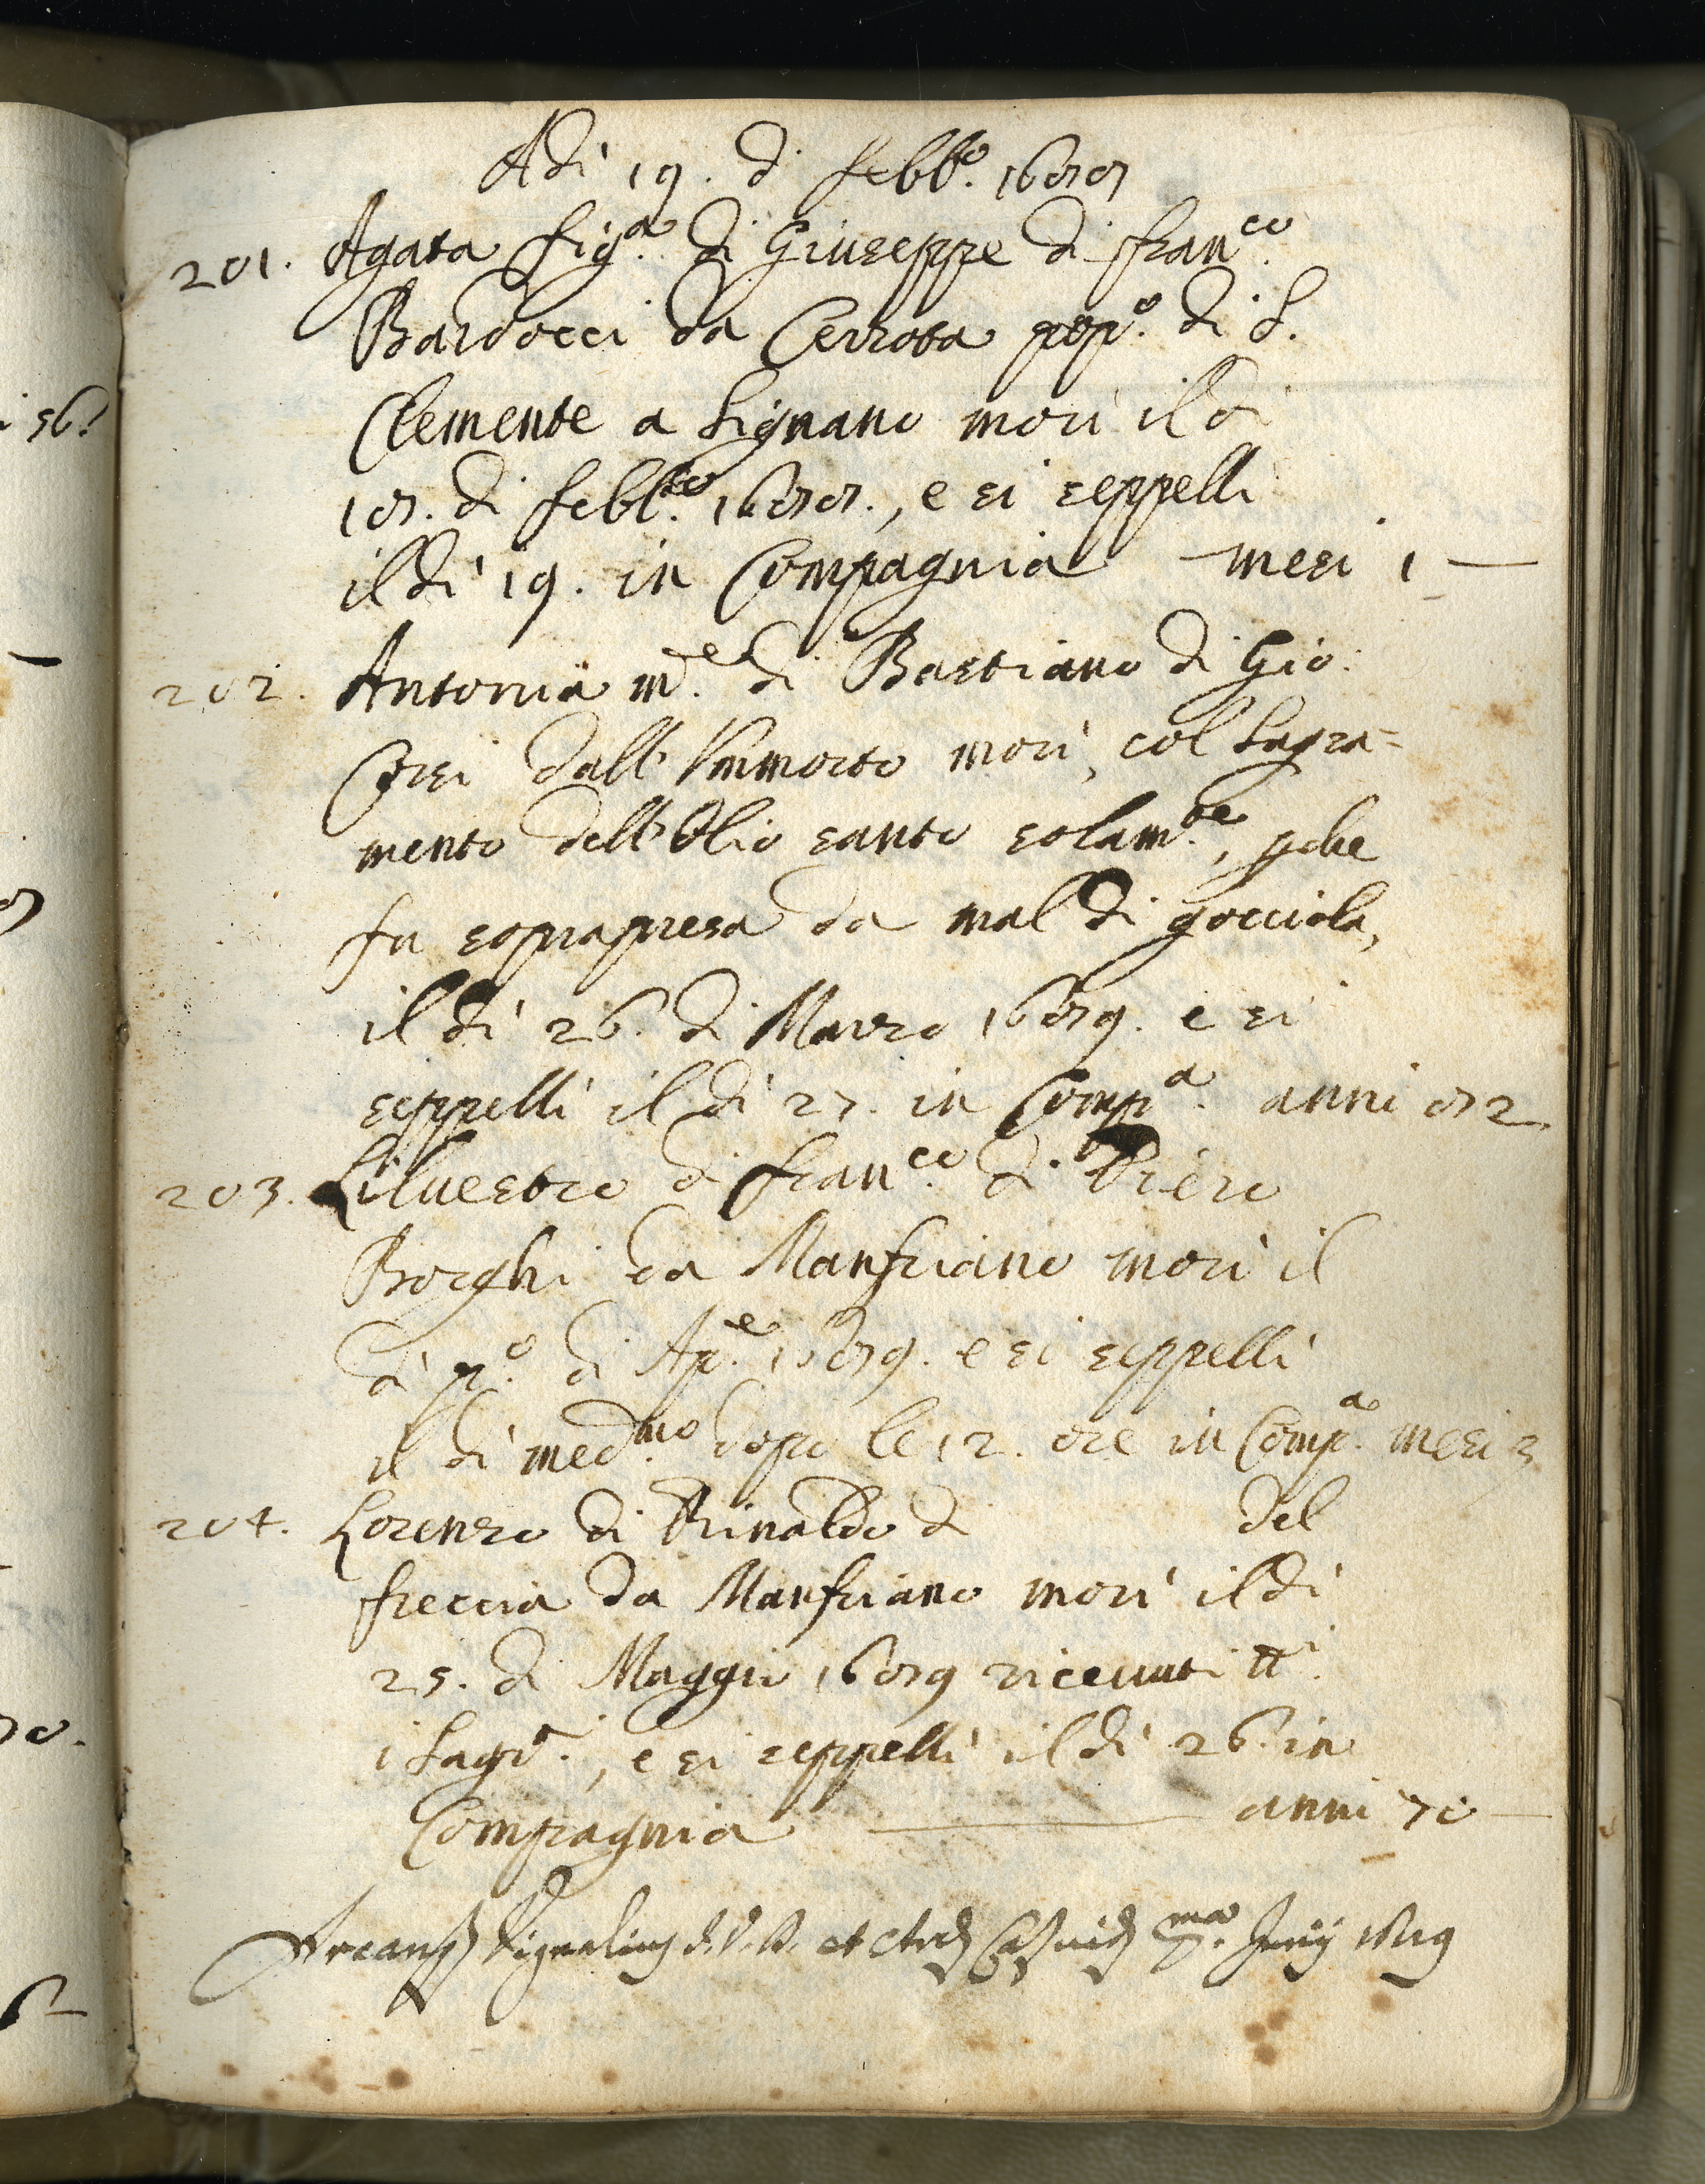 Adì 19. di febb.o 1688
201. Agata fig.a di Giuseppe di fran.co
Bardocci da Cerrota pop.o di S.
Clemente a Signano morì il dì
18. di febb.o 1688., e si seppellì
il dì 19. in Compagnia mesi 1 —
202. Antonia m.e di Bastiano di Gio:
Orsi dall' morì, col Sagra=
mento dell'Olio santo solam.te, pche
fu soprapresa da mal di gocciola,
il dì 26. di Marzo 1689. e si
seppellì il dì 27. in Comp.a anni 82
203. Silvestro di fran.co di Piero
Borghi da Manfriano morì il
dì p.o di Ap.e 1689. e si seppellì
il dì med.mo dopo le 12. ore in Comp.a mesi 3
204. Lorenzo di Rinaldo di del
freccia da Manfriano morì il dì
25. di Maggio 1689 ricevuti tt.i
i Sagr.i, e si seppellì il dì 26. in
Compagnia — anni 70 —
et Junij 1689